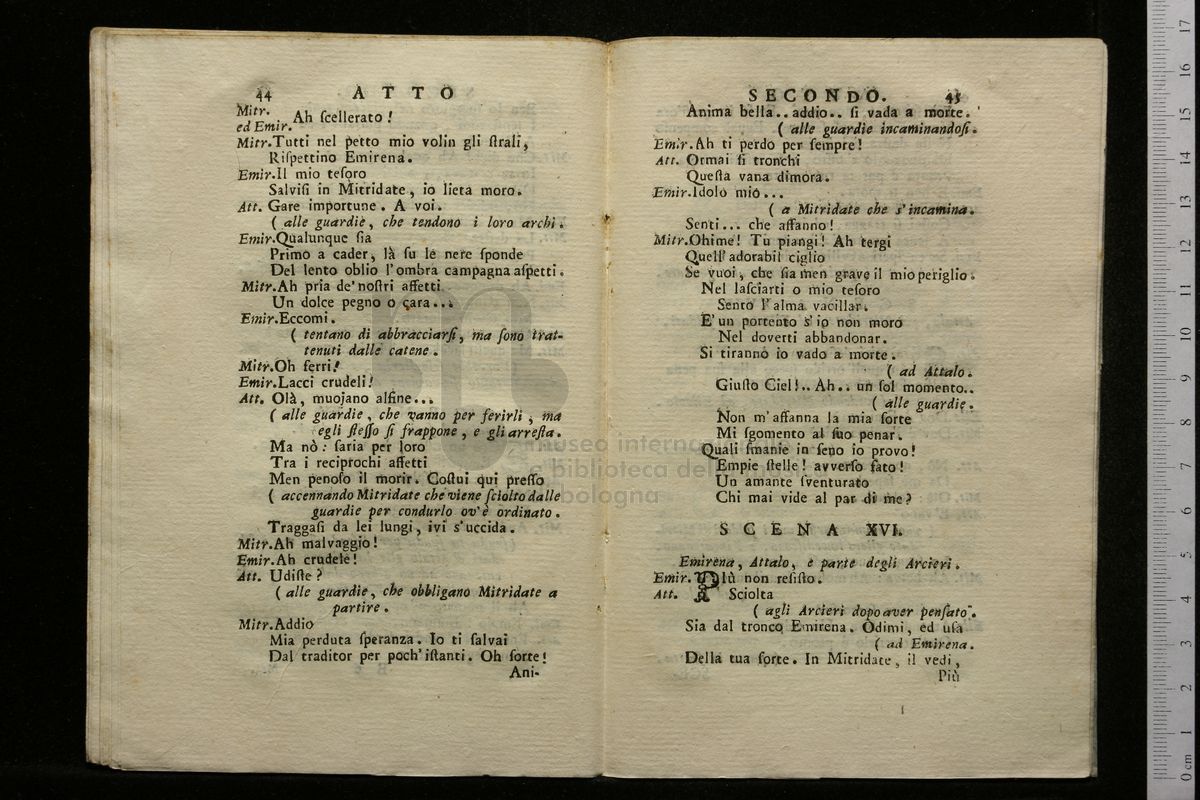 44 ATTO
Mitr.
ed Emir. Ah ſcellerato!
Mitr.Tutti nel petto mio volin gli ſtrali,
Riſpettino Emirena.
Emir.Il mio teſoro
Salviſi in Mitridate, io lieta moro.
Att. Gare importune. A voi.
( alle guardie, che tendono i loro archi.
Emir.Qualunque ſia
Primo a cader, là ſu le nere ſponde
Del lento oblio l'ombra campagna aſpetti.
Mitr.Ah pria de' noſtri affetti
Un dolce pegno o cara...
Emir.Eccomi.
( tentano di abbracciarſi, ma ſono trat-
tenuti dalle catene.
Mitr.Oh ferri!
Emir.Lacci crudeli!
Att. Olà, muojano alfine...
( alle guardie, che vanno per ferirli, ma
egli ſteſſo ſi frappone, e gli arreſta.
Ma nò: ſaria per loro
Tra i reciprochi affetti
Men penoſo il morir. Coſtui qui preſſo
( accennando Mitridate che viene ſciolto dalle
guardie per condurlo ov'è ordinato.
Traggaſi da lei lungi, ivi s'uccida.
Mitr.Ah malvaggio!
Emir.Ah crudele!
Att. Udiſte?
( alle guardie, che obbligano Mitridate a
partire.
Mitr.Addio
Mia perduta ſperanza. Io ti ſalvai
Dal traditor per poch'iſtanti. Oh ſorte!
Ani-
SECONDO. 45
Anima bella.. addio.. ſi vada a morte.
( alle guardie incaminandoſi.
Emir.Ah ti perdo per ſempre!
Att. Ormai ſi tronchi
Queſta vana dimora.
Emir.Idolo mio...
( a Mitridate che s'incamina.
Senti... che affanno!
Mitr.Ohimè! Tu piangi! Ah tergi
Quell'adorabil ciglio
Se vuoi, che ſia men grave il mio periglio.
Nel laſciarti o mio teſoro
Sento l'alma vacillar.
E' un portento s'io non moro
Nel doverti abbandonar.
Si tiranno io vado a morte.
( ad Attalo.
Giuſto Ciel!.. Ah.. un ſol momento..
( alle guardie.
Non m'affanna la mia ſorte
Mi ſgomento al ſuo penar.
Quali ſmanie in ſeno io provo!
Empie ſtelle! avverſo fato!
Un amante ſventurato
Chi mai vide al par di me?
SCENA XVI.
Emirena, Attalo, e parte degli Arcieri.
Emir. Più non reſiſto.
Att. Sciolta
( agli Arcieri dopo aver penſato.
Sia dal tronco Emirena. Odimi, ed uſa
( ad Emirena.
Della tua ſorte. In Mitridate, il vedi,
Più
museo internazionale
e biblioteca della musica
bologna
0 cm 1 2 3 4 5 6 7 8 9 10 11 12 13 14 15 16 17